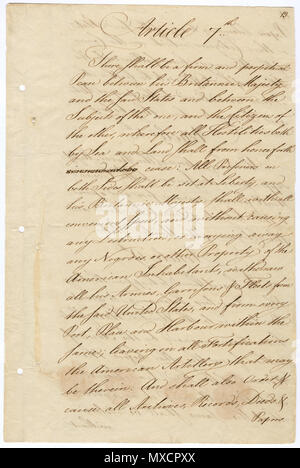 13
Article 7.th
There shall be a firm and perpetual
Peace between his Britannic Majesty
and the said States and between the
Subjects of the one, and the Citizens of
the other, wherefore all Hostilities both
by Sea and Land shall from henceforth
cease: All Prisoners on
both Sides shall be set at Liberty, and
his Britannic Majesty shall with all
convenient speed, and without causing
any Destruction, or carrying away
any Negroes or other Property of the
American Inhabitants, withdraw
all his Armies, Garrisons & Fleets from
the said United States, and from every
Port, Place and Harbour within the
same; leaving in all Fortifications
the American Artillery that may
be therein: And shall also Order &
cause all Archives, Records, Deeds &
Papers
alamy
Image ID: MXCPXX
www.alamy.com